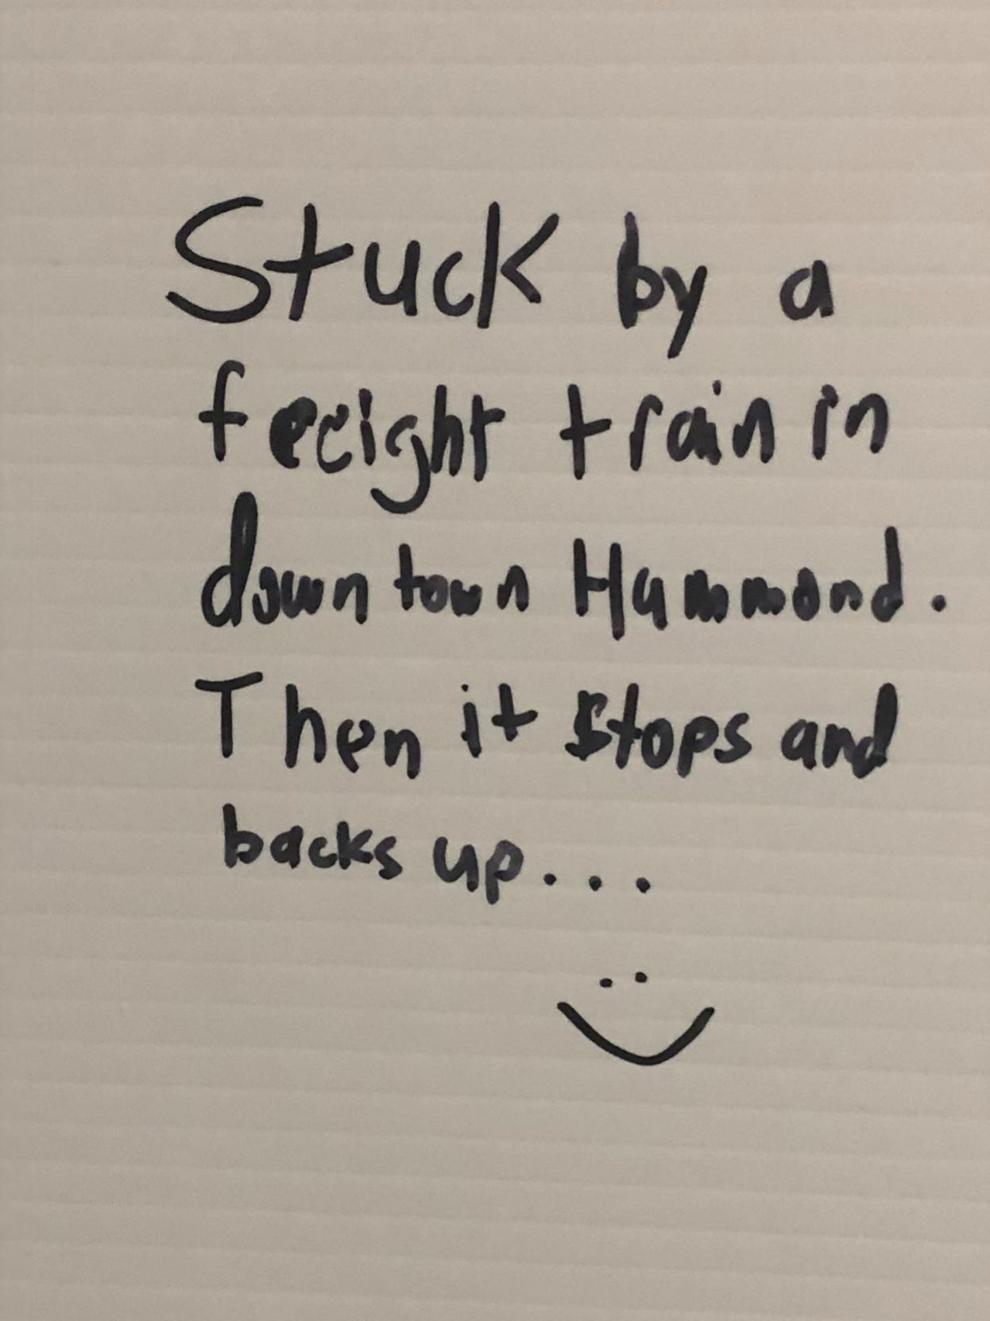 Stuck by a
feeight train in
downtown Hammond.
Then it stops and
backs up...